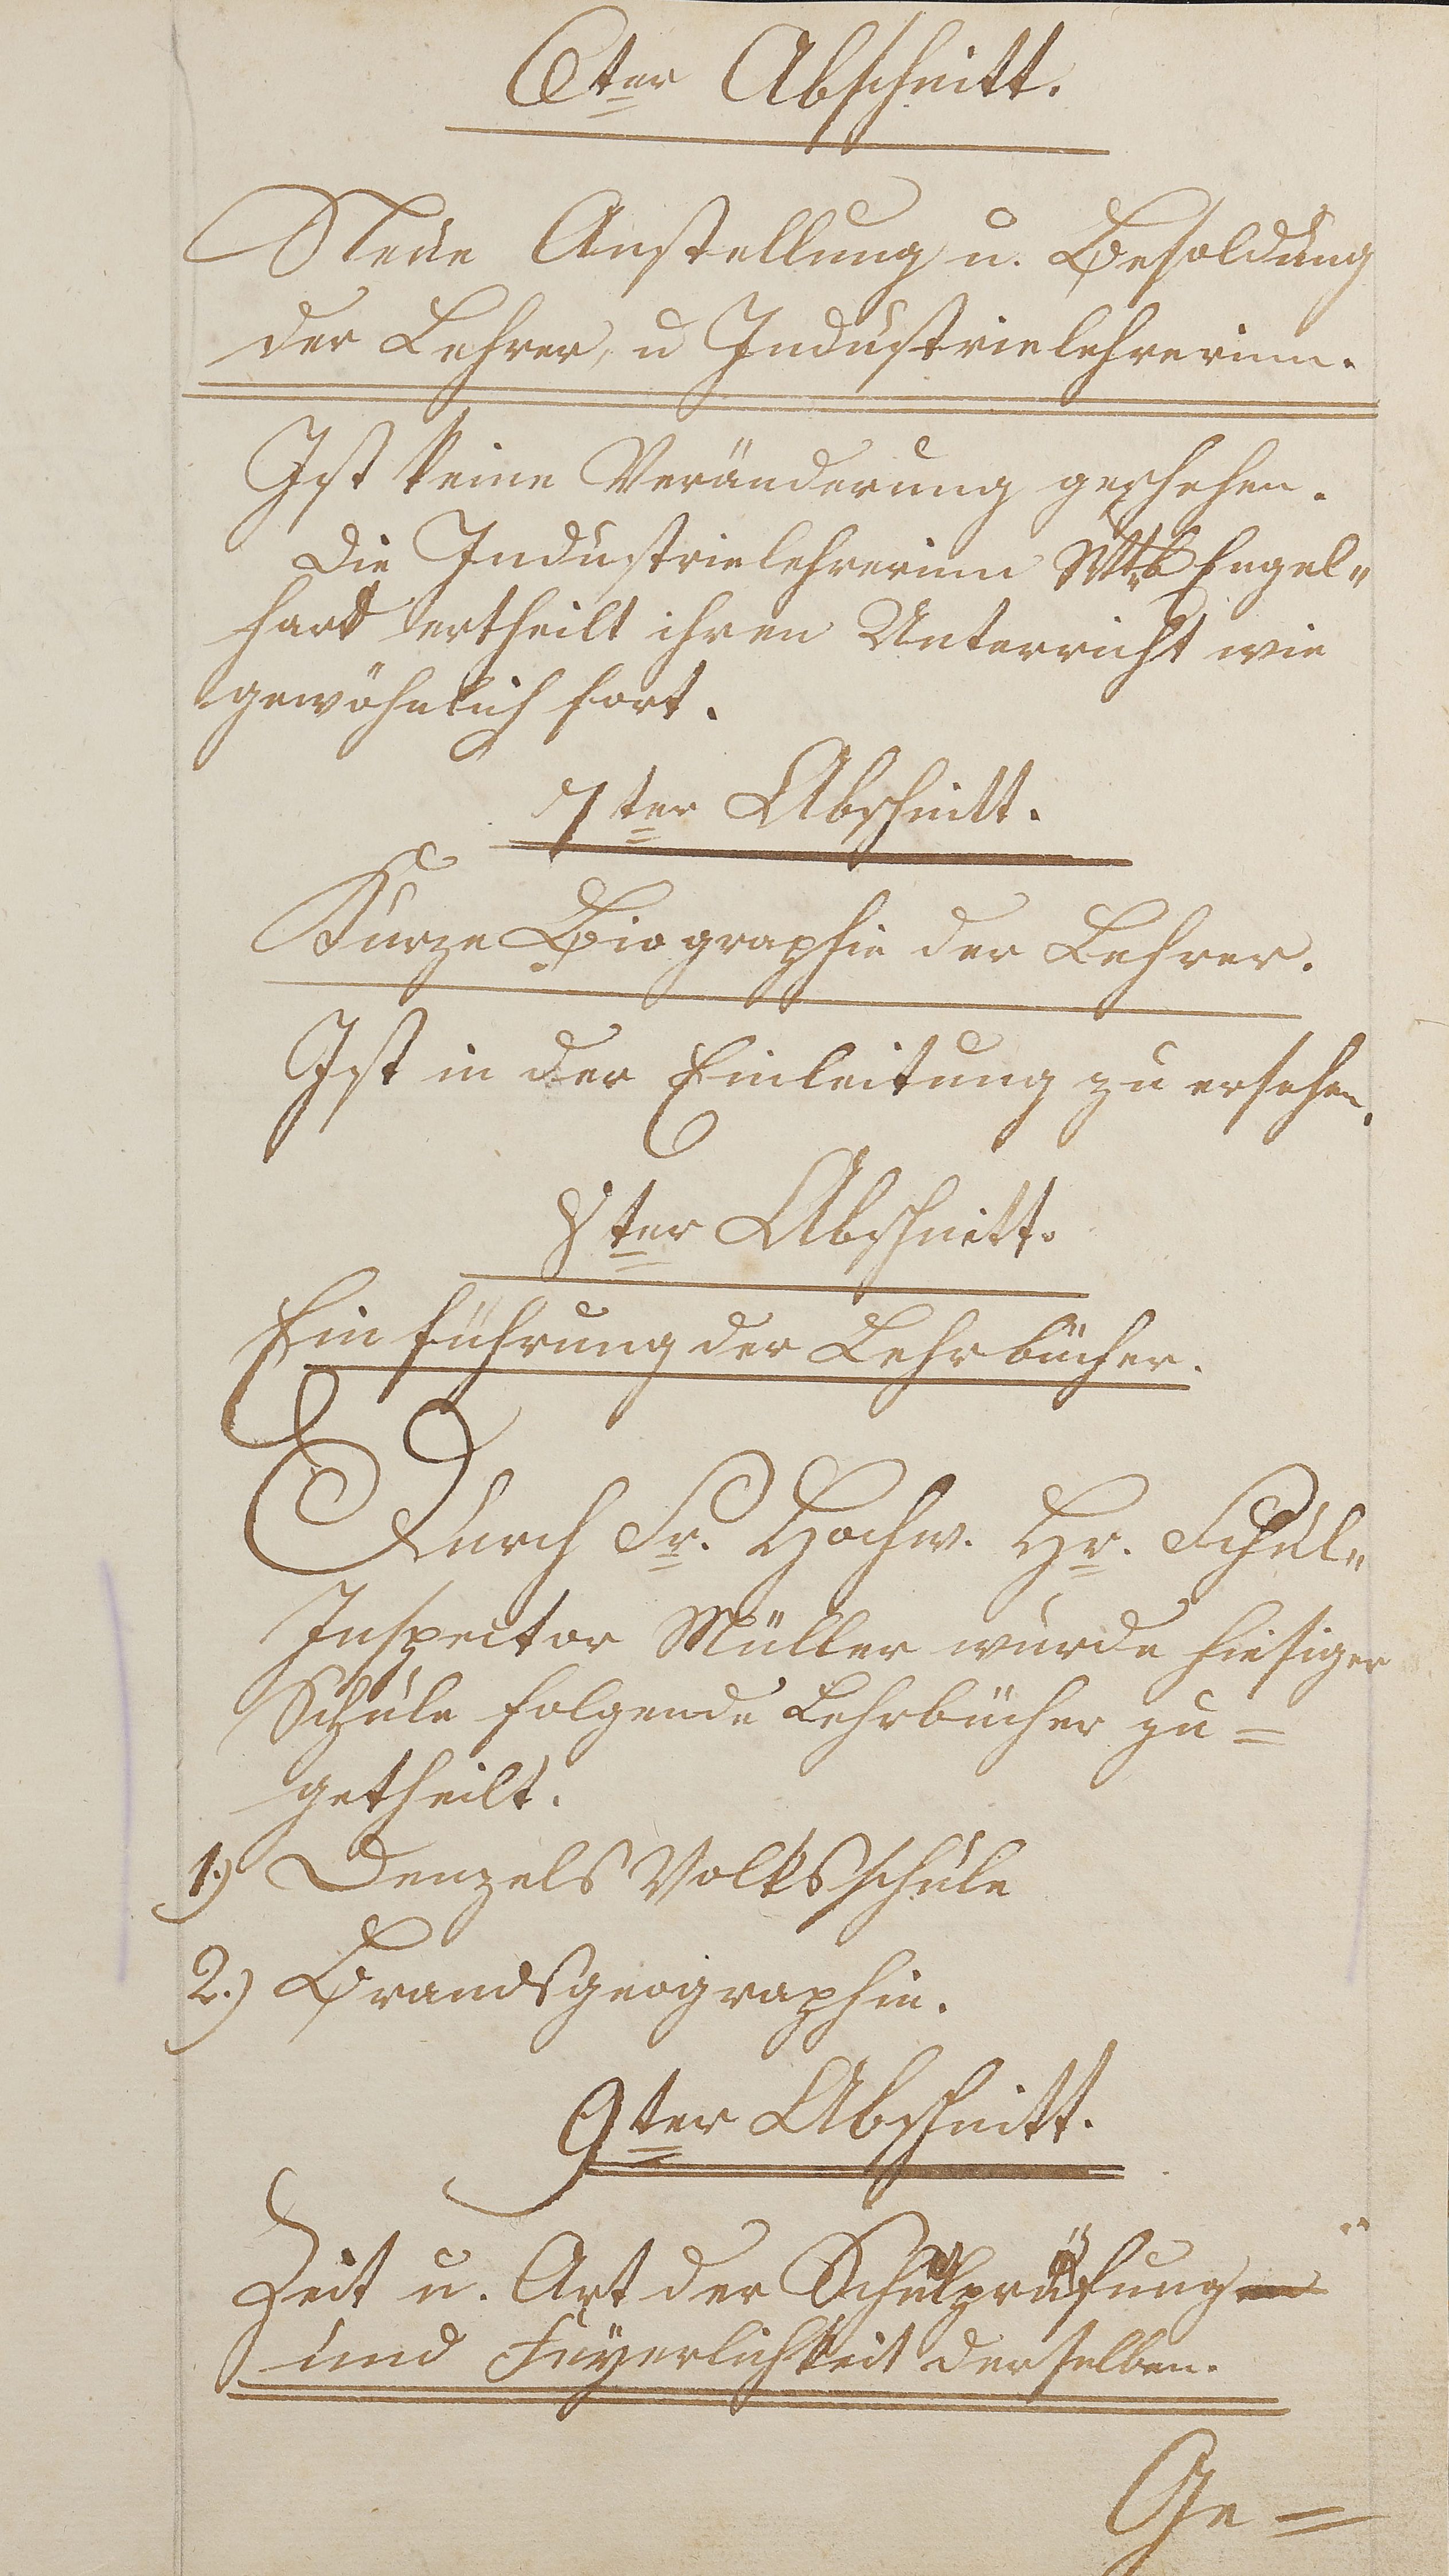 6ter Abschnitt.
Neue Anstellung u. Besoldung
der Lehrer, u Industrielehrerinn.
Ist keine Veränderung geschehen.
Die Industrielehrerinn Engel„
hard ertheilt ihren Unterricht wie
gewöhnlich fort.
7ter Abschnitt.
Kurze Biographie der Lehrer.
Ist in der Einleitung zu ersehen.
8ter Abschnitt.
Einführung der Lehrbücher.
Durch Sr. Hochw. Hr. Schul„
Inspector Müller wurde hiesiger
Schule folgende Lehrbücher zu=
getheilt.
1.) Denzels Volksschule
2.) Brandsgeographie.
9ter Abschnitt.
Zeit u. Art der Schulprüfung
und Feyerlichkeit derselben.
Ge=